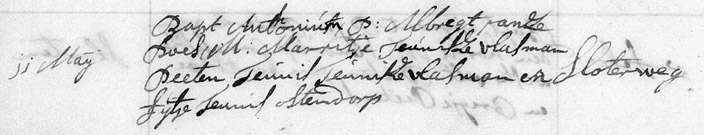 Bapt Antonius p: Albregt vande
11 May poel, M: Marritje Teunisse vlasman
peeten Teunis Teunisse vlasman en Sloterweg
fijtje Teunis ostendorp